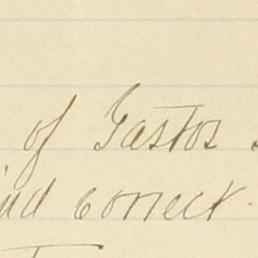 of Gaston
and correct.